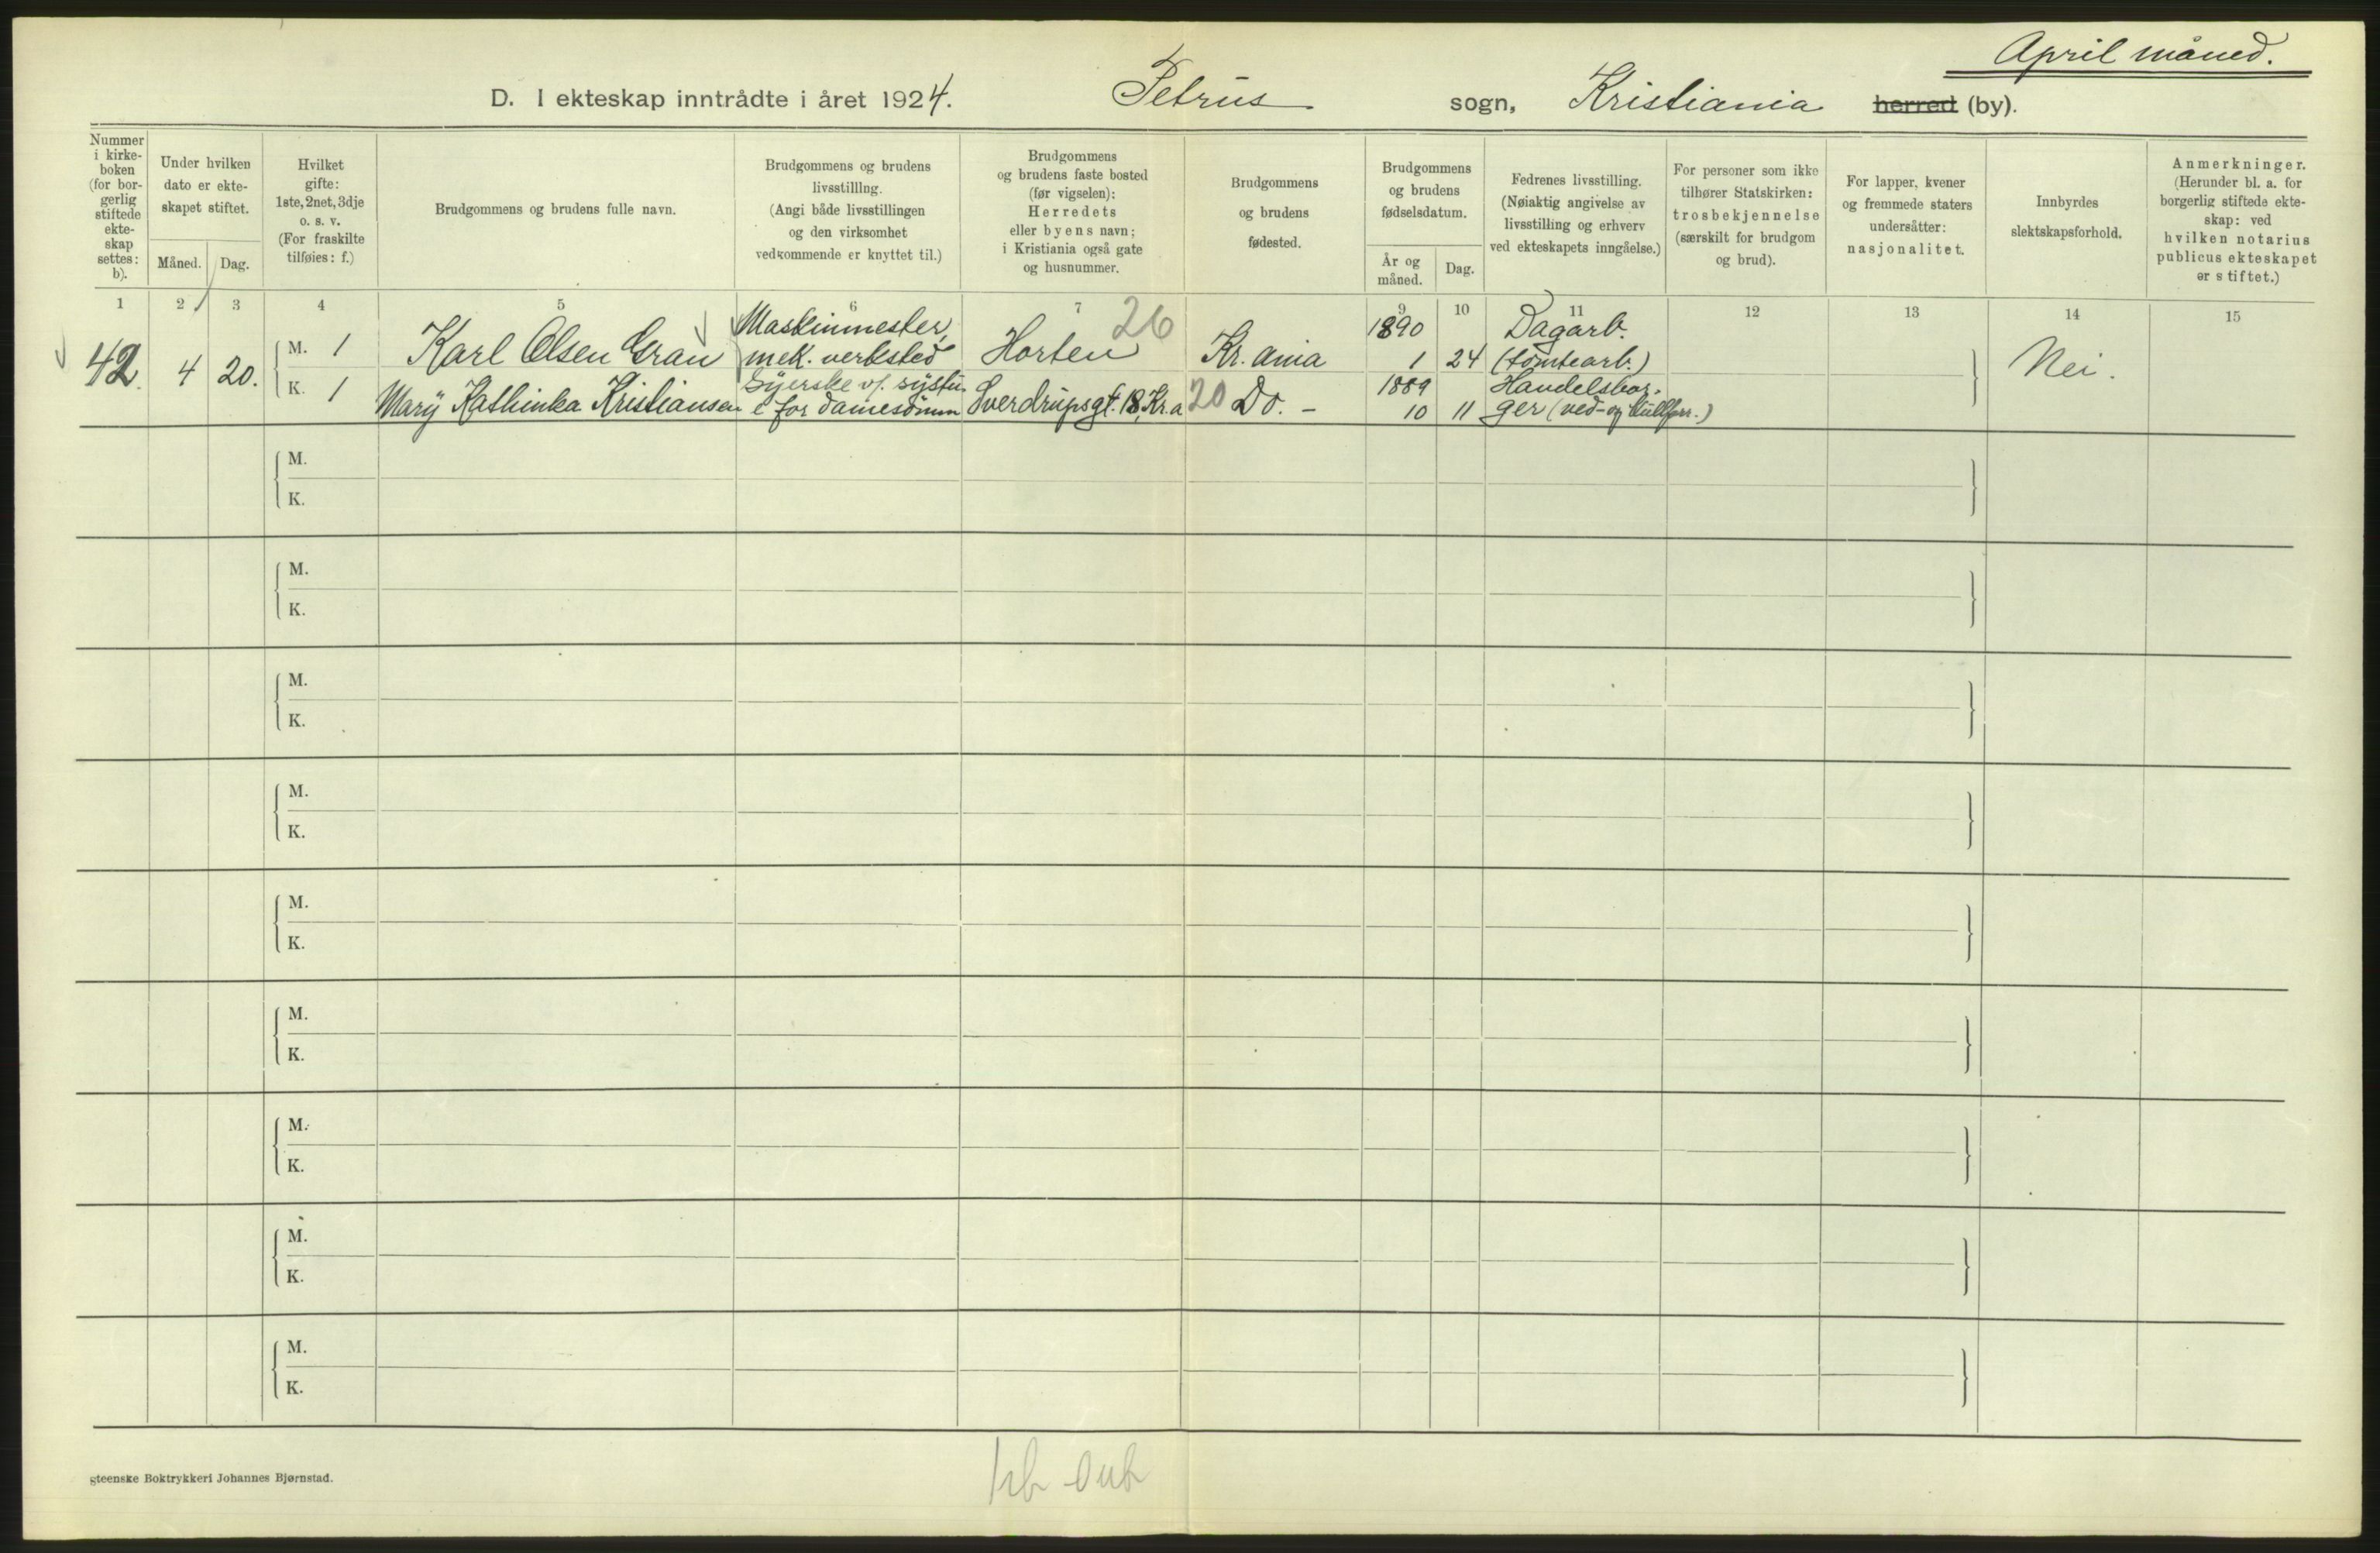 April måned.
D. I ekteskap inntrådte i året 1924. Petrus sogn, Kristiania herred (by).
Nummer
i kirke-
boken
(for bor-
gerlig
stiftede
ekte-
skap
settes:
b).
Under hvilken
dato er ekte-
skapet stiftet.
Måned. Dag.
Hvilket
gifte:
1ste, 2net, 3dje
o. s. v.
(For fraskilte
tilføies: f.)
Brudgommens og brudens fulle navn.
Brudgommens og brudens
livsstilling.
(Angi både livsstillingen
og den virksomhet
vedkommende er knyttet til.)
Brudgommens
og brudens faste bosted
(før vigselen):
Herredets
eller byens navn;
i Kristiania også gate
og husnummer.
Brudgommens
og brudens
fødested.
Brudgommens
og brudens
fødselsdatum.
År og
måned.
Dag.
Fedrenes livsstilling.
(Nøiaktig angivelse av
livsstilling og erhverv
ved ekteskapets inngåelse.)
For personer som ikke
tilhører Statskirken:
trosbekjennelse
(særskilt for brudgom
og brud).
For lapper, kvener
og fremmede staters
undersåtter:
nasjonalitet.
Innbyrdes
slektskapsforhold.
Anmerkninger.
(Herunder bl. a. for
borgerlig stiftede ekte-
skap: ved
hvilken notarius
publicus ekteskapet
er stiftet.)
1 2 3 4 5 6 7 9 10 11 12 13 14 15
42. 4 20.
M. 1 Karl Olsen Grau
Maskinmester,
mek. verksted
Horten 26
Kr.ania
1890
1 24
Dagarb.
(tomtearb.)
Nei.
K. 1 Mary Kathinka Kristiansen
Syerske v/. systu-
e for damesöm
Sverdrupsgt. 18, Kr.a
20 Do. -
1889
10 11
Handelsbor-
ger (ved- og kullforr.)
M.
K.
M.
K.
M.
K.
M.
K.
M.
K.
M.
K.
M.
K.
M.
K.
M.
K.
gteenske Boktrykkeri Johannes Bjørnstad.